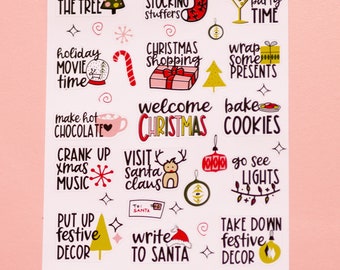 THE TREE
STOCKING
stuffers
party
TIME
holiday
MOVIE
time
CHRISTMAS
shopping
wrap
some
PRESENTS
make hot
CHOCOLATE
welcome
CHRISTMAS
bake
COOKIES
CRANK UP
xmas
MUSIC
VISIT
santa
claus
go see
LIGHTS
TO:
SANTA
PUT UP
festive
DECOR
write
TO SANTA
TAKE DOWN
festive
DECOR